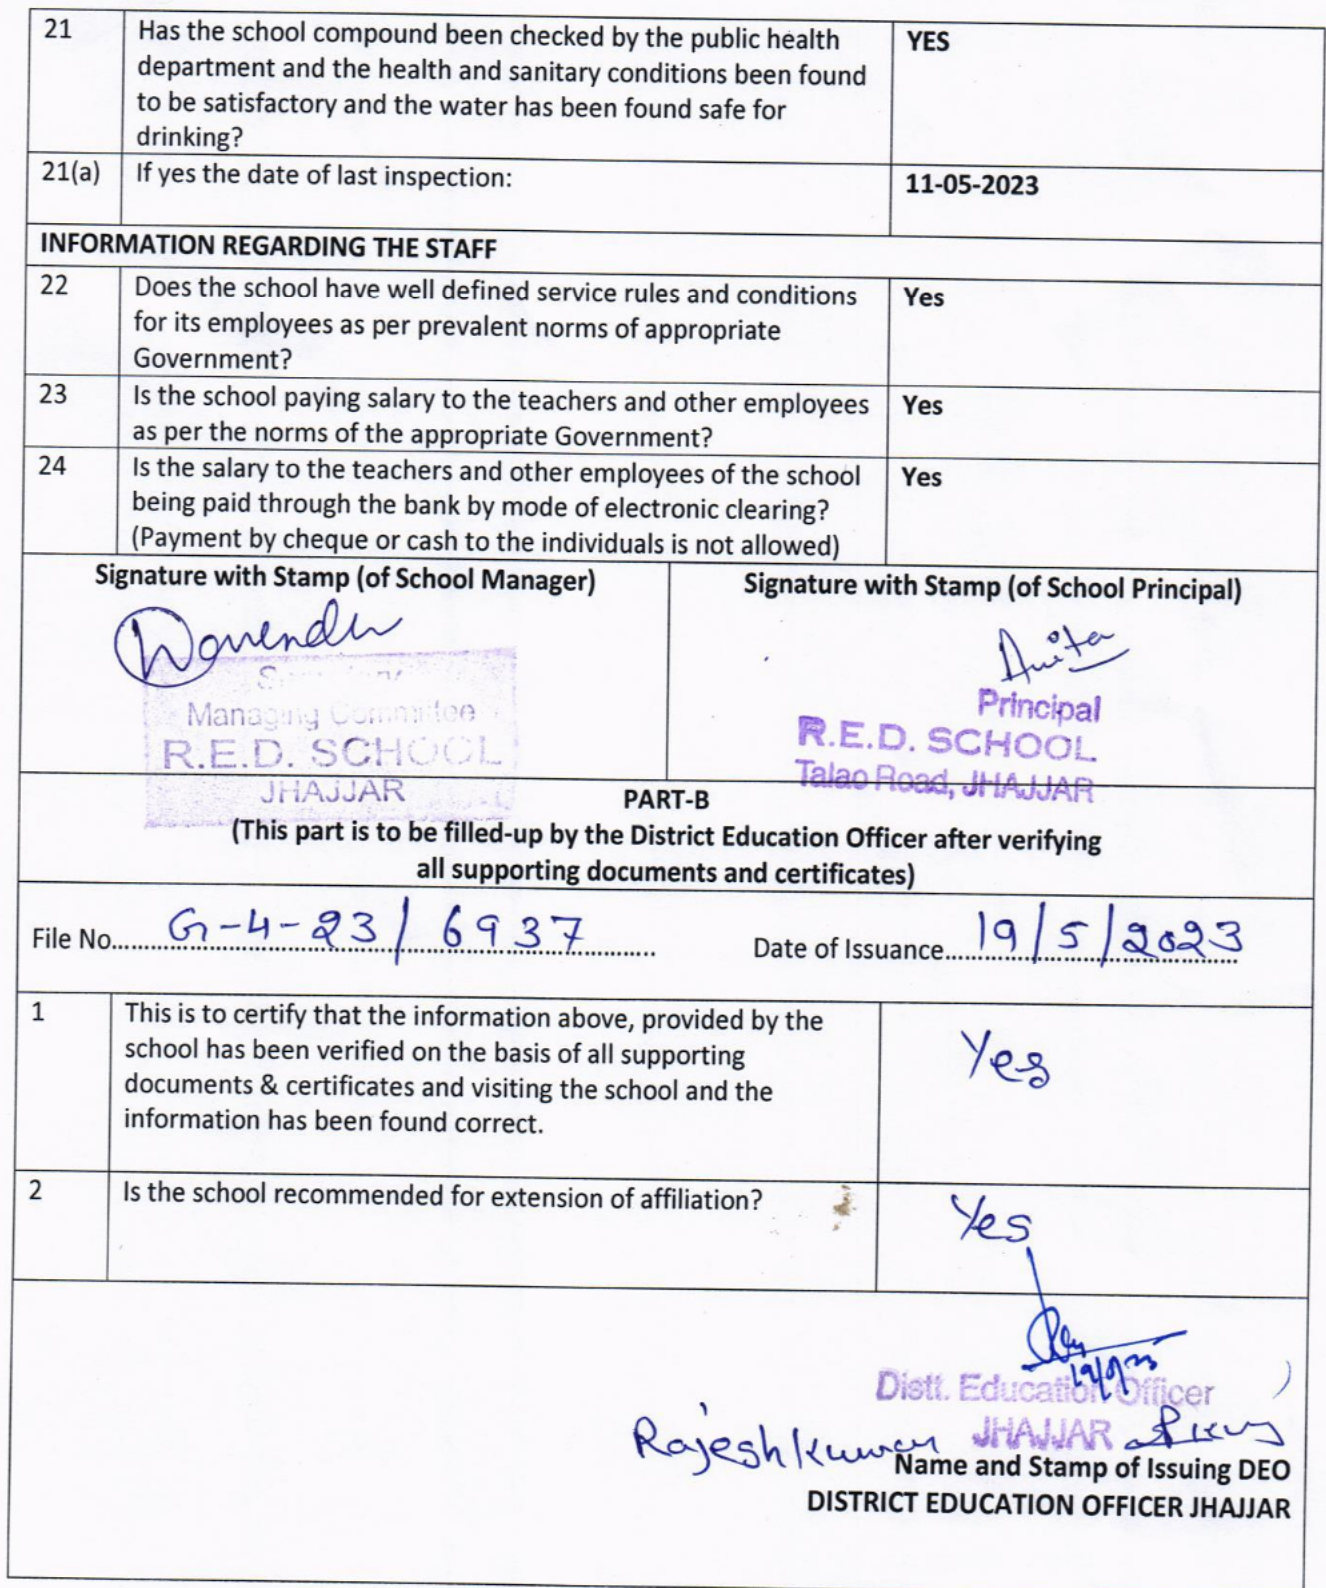 21 Has the school compound been checked by the public health YES
department and the health and sanitary conditions been found
to be satisfactory and the water has been found safe for
drinking?
21(a) If yes the date of last inspection: 11-05-2023
INFORMATION REGARDING THE STAFF
22 Does the school have well defined service rules and conditions Yes
for its employees as per prevalent norms of appropriate
Government?
23 Is the school paying salary to the teachers and other employees Yes
as per the norms of the appropriate Government?
24 Is the salary to the teachers and other employees of the school Yes
being paid through the bank by mode of electronic clearing?
(Payment by cheque or cash to the individuals is not allowed)
Signature with Stamp (of School Manager)
Managing Committee
R.E.D. SCHOOL
JHAJJAR
Signature with Stamp (of School Principal)
Anita
Principal
R.E.D. SCHOOL
Talao Road, JHAJJAR
PART-B
(This part is to be filled-up by the District Education Officer after verifying
all supporting documents and certificates)
File No. G-4-23/6937 Date of Issuance 19/5/2023
1 This is to certify that the information above, provided by the Yes
school has been verified on the basis of all supporting
documents & certificates and visiting the school and the
information has been found correct.
2 Is the school recommended for extension of affiliation? Yes
Distt. Education Officer
Rajesh Kumar JHAJJAR
Name and Stamp of Issuing DEO
DISTRICT EDUCATION OFFICER JHAJJAR